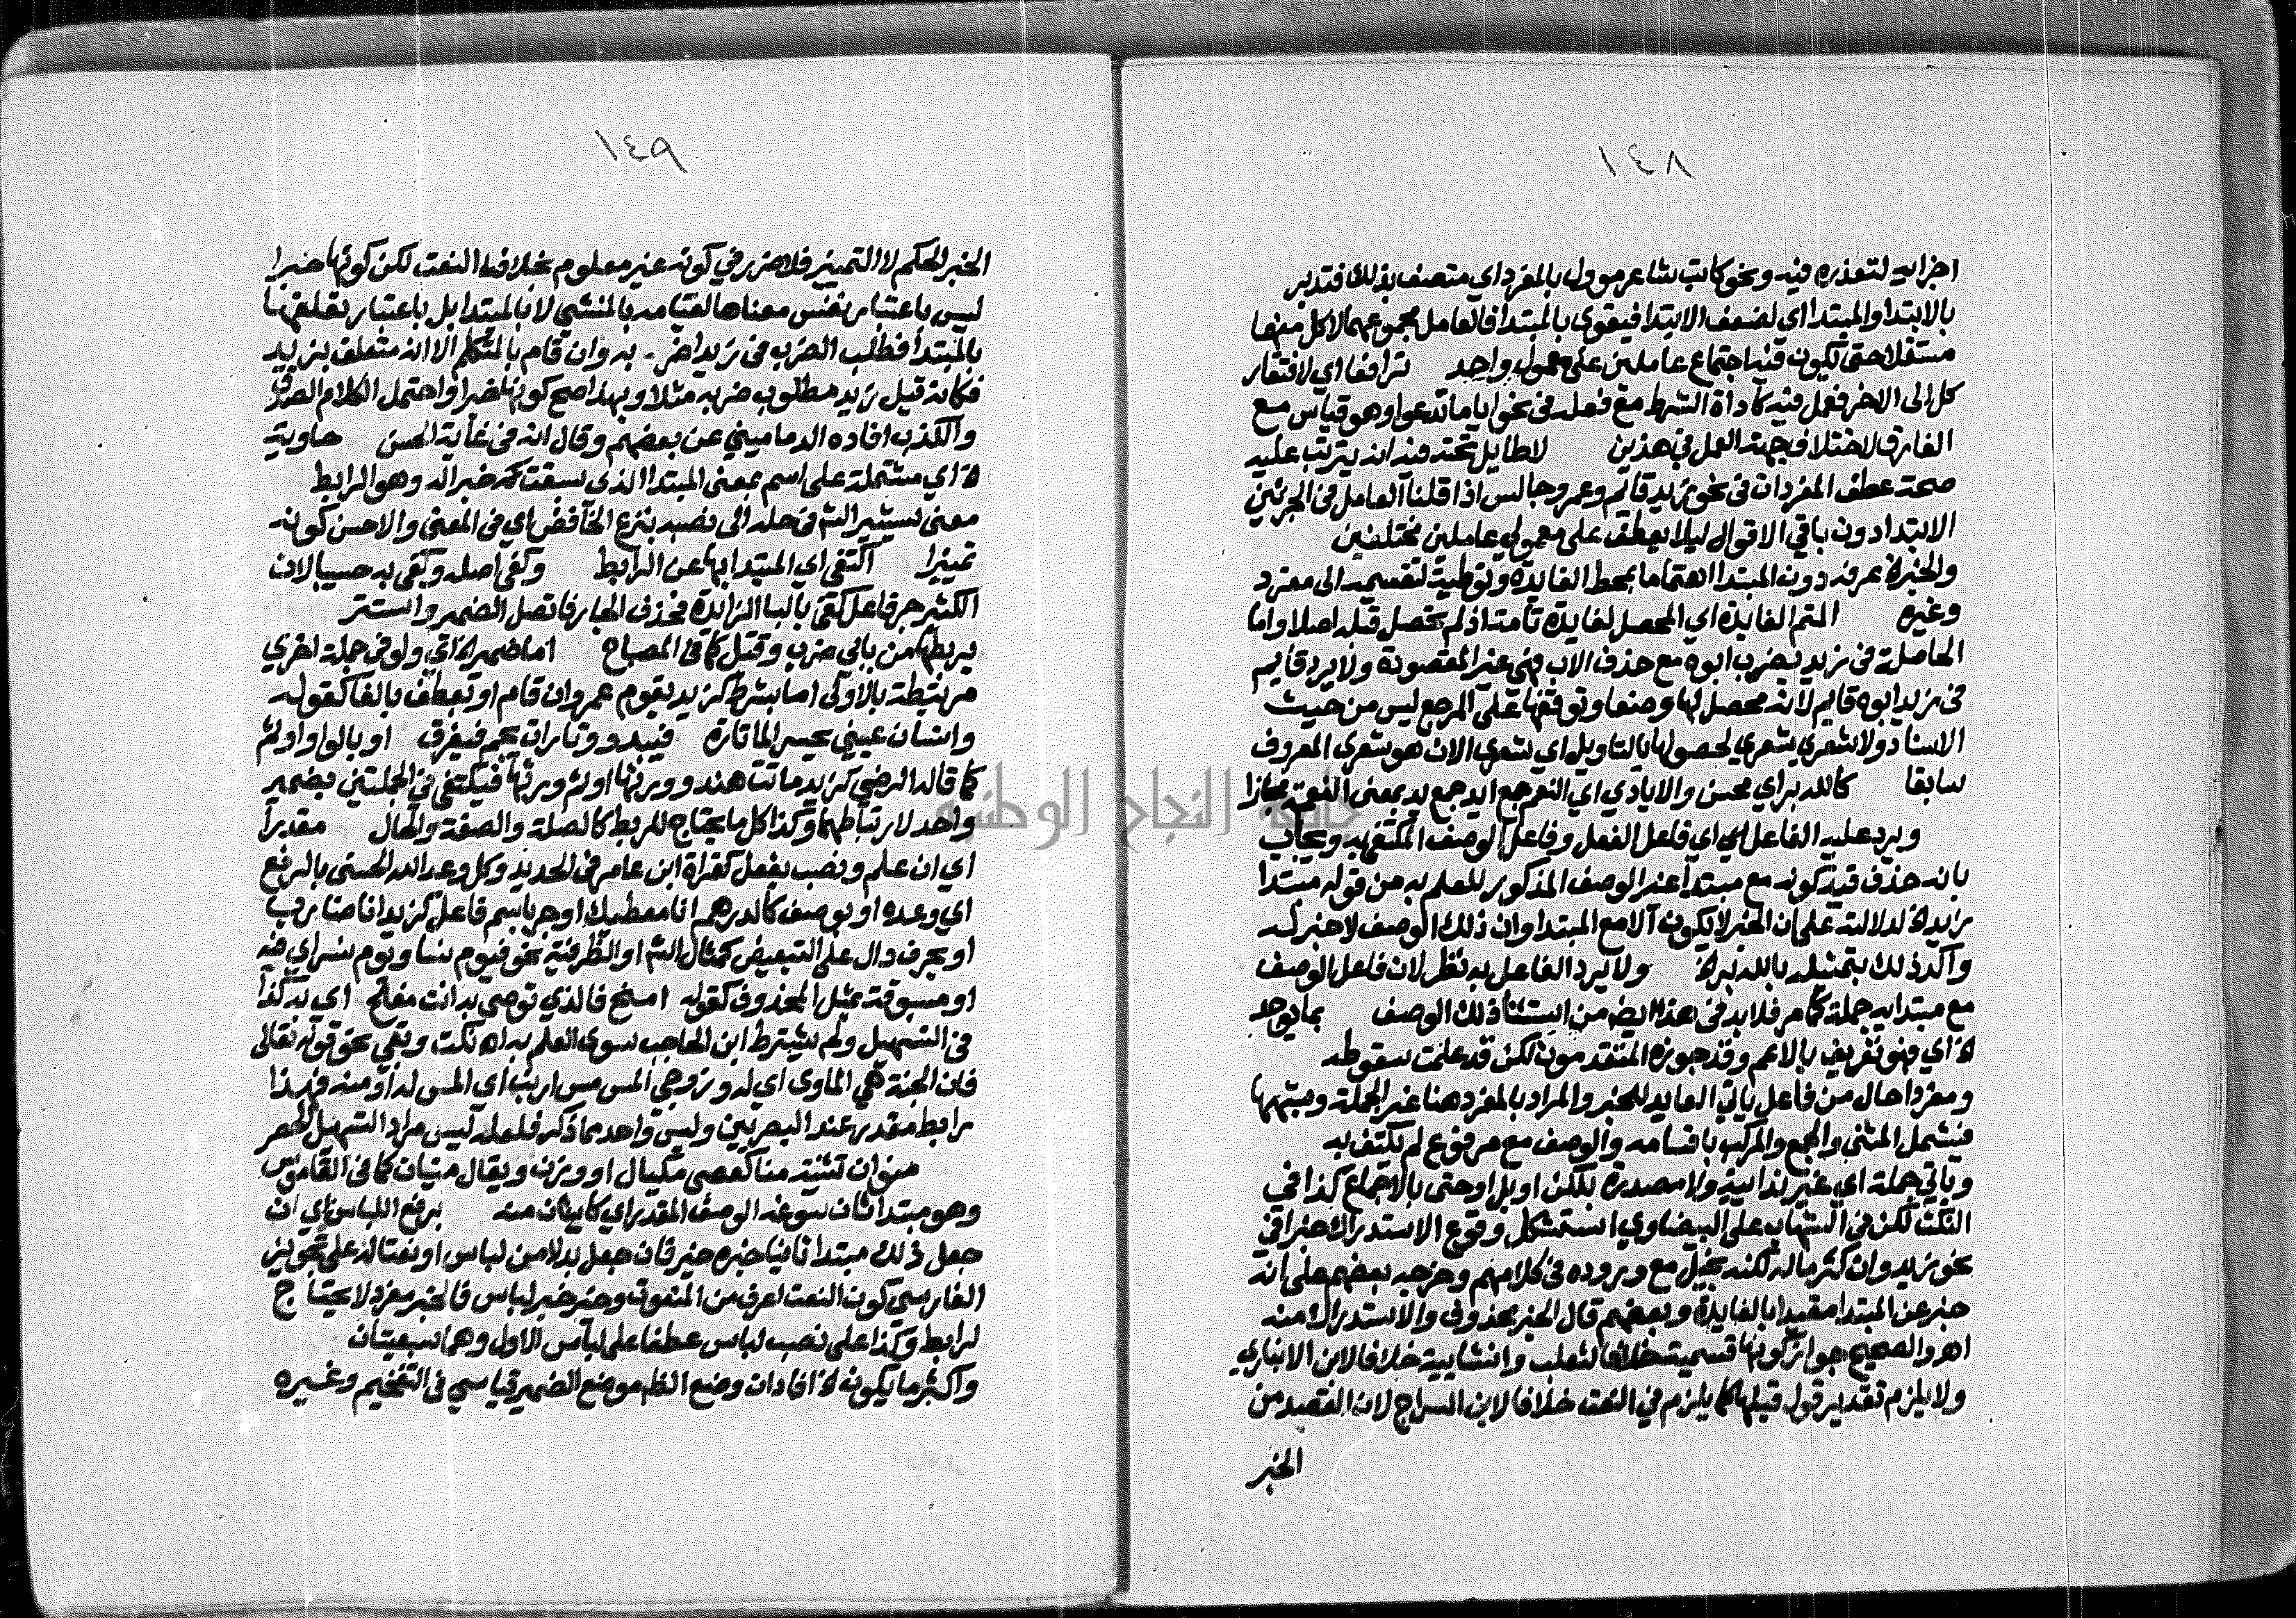 ١٤٨
اجزايه لتعذره فيه ونحو كاتب شاعر موول بالمفرد اي متصف بذلك فتدبر
بالابتدا والمبتدا اي لضعف الابتدا فيقوى بالمبتدا فالعامل مجموعهما لا كل منهما
مستقلا حتى يكون فيه اجتماع عاملين على معمول واحد ترافعا اي لافتقار
كل الى الاخر فعمل فيه كاداة الشرط مع فعله في نحو ايا ما تدعوا وهو قياس مع
الفارق لاختلاف جهة العمل في هذين لا طايل تحته فيه انه يترتب عليه
صحة عطف المفردات في نحو زيد قايم وعمرو جالس اذا قلنا العامل في الجزئين
الابتدا دون باقي الاقوال ليلا يعطف على معمولي عاملين مختلفين
والخبر الخ عرفه دون المبتدا اهتماما بمحط الفايدة وتوطية لتقسيمه الى مفرد
وغيره المتم الفايدة اي المحصل لفايدة تامة اذ لم تحصل قبله اصلا واما
الحاصلة في زيد يضرب ابوه مع حذف الاب فهي غير المقصودة ولا يرد قايم
في زيد ابوه قايم لانه محصل لها وضعا وتوقفها على المرجع ليس من حيث
الاسناد ولا شعري شعري لحصولها بالتاويل اي شعري الان هو شعري المعروف
سابقا كالله بر اي محسن والايادي اي النعم جمع ايد جمع يد بمعنى النعمة مجازا
ويرد عليه الفاعل اي فاعل الفعل وفاعل الوصف المكتفى به ويجاب
بانه حذف قيد كونه مع مبتدا غير الوصف المذكور للعلم به من قوله مبتدا
زيد الخ لدلالته على ان الخبر لا يكون الا مع المبتدا وان ذلك الوصف لا خبر له
واكد ذلك بتمثيله بالله بر الخ ولا يرد الفاعل به نظر لان فاعل الوصف
مع مبتدايه جملة كما مر فلا بد في هذا ايضا من استثنا ذلك الوصف بما يوجد
الخ اي فهو تعريف بالاعم وقد جوزه المتقدمون لكن قد علمت سقوطه
ومفردا حال من فاعل ياتي العايد للخبر والمراد بالمفرد هنا غير الجملة وشبهها
فيشمل المثنى والجمع والمركب باقسامه والوصف مع مرفوع لم يكتف به
وياتي جملة اي غير ندايية ولا مصدرة بلكن او بل او حتى بالاجماع كذا في
النكت لكن في الشهاب على البيضاوي استشكل وقوع الاستدراك خبرا في
نحو زيد وان كثر ماله لكنه بخيل مع وروده في كلامهم وخرجه بعضهم على انه
خبر عن المبتدا مقيدا بالفايدة وبعضهم قال الخبر محذوف والاستدراك منه
اهـ والصحيح جواز كونها قسمية خلافا لثعلب وانشايية خلافا لابن الانباري
ولا يلزم تقدير قول قبلها كما يلزم في النعت خلافا لابن السراج لان القصد من
الخبر
١٤٩
الخبر الحكم لا التمييز فلا ضرر في كونه غير معلوم بخلاف النعت لكن كونها خبرا
ليس باعتبار نفس معناها لقيامه بالمنشي لا بالمبتدا بل باعتبار تعلقها
بالمبتدا فطلب الضرب في زيد اضر به وان قام بالمتكلم الا انه متعلق بزيد
فكانه قيل زيد مطلوب ضربه مثلا وبهذا صح كونها خبرا واحتمل الكلام الصدق
والكذب افاده الدماميني عن بعضهم وقال انه في غاية الحسن حاوية
الخ اي مشتملة على اسم بمعنى المبتدا الذي سيقت خبرا له وهو الرابط
معنى يشير الش في حله الى نصبه بنزع الخافض اي في المعنى والاحسن كونه
تمييزا اكتفى اي المبتدا بها عن الرابط وكفى اصله وكفى به حسيبا لان
الكثير جر فاعل كفى بالبا الزايدة فحذف الجار فاتصل الضمير واستتر
يربطها من بابي ضرب وقتل كما في المصباح اما ضمير الخ اي ولو في جملة اخرى
مرتبطة بالاولى اما بشرط كزيد يقوم عمرو ان قام او بعطف بالفا كقوله
وانسان عيني يحسر الما تارة فيبدو وتارات يجم فيغرق او بالواو او ثم
كما قاله الرضي كزيد ماتت هند وورثها او ثم ورثها فيكتفى في الجملتين بضمير
واحد لارتباطهما وكذا كل ما يحتاج للربط كالصلة والصفة والحال مقدرا
اي ان علم ونصب بفعل كقراة ابن عامر في الحديد وكل وعد الله الحسنى بالرفع
اي وعده او بوصف كالدرهم انا معطيك او جر باسم فاعل كزيد انا ضارب
او بحرف دال على التبعيض كمثال الش او الظرفية نحو فيوم لنا ويوم نسر اي فيه
او مسبوقة بمثل المحذوف كقوله اصخ فالذي توصى به انت مفلح اي به كذا
في التسهيل ولم يشترط ابن الحاجب سوى العلم به اهـ نكت وبقي نحو قوله تعالى
فان الجنة هي الماوى اي له وزوجي المس مس ارنب اي المس له او منه فهذا
رابط مقدر عند البصريين وليس واحد مما ذكر فلعله ليس مراد التسهيل الحصر
منوان تثنية منا كعصى مكيال او وزن ويقال منيان كما في القاموس
وهو مبتدا ثان سوغه الوصف المقدر اي كاينان منه برفع اللباس اي ان
جعل ذلك مبتدا ثانيا خبره خير فان جعل بدلا من لباس او نعتا له على تجويز
الفارسي كون النعت اعرف من المنعوت وخير خبر لباس فالخبر مفرد لا يحتاج
لرابط وكذا على نصب لباس عطفا على لباس الاول وهما سبعيتان
واكثر ما يكون الخ افاد ان وضع الظاهر موضع الضمير قياسي في التفخيم وغيره
جامعة النجاح الوطنية